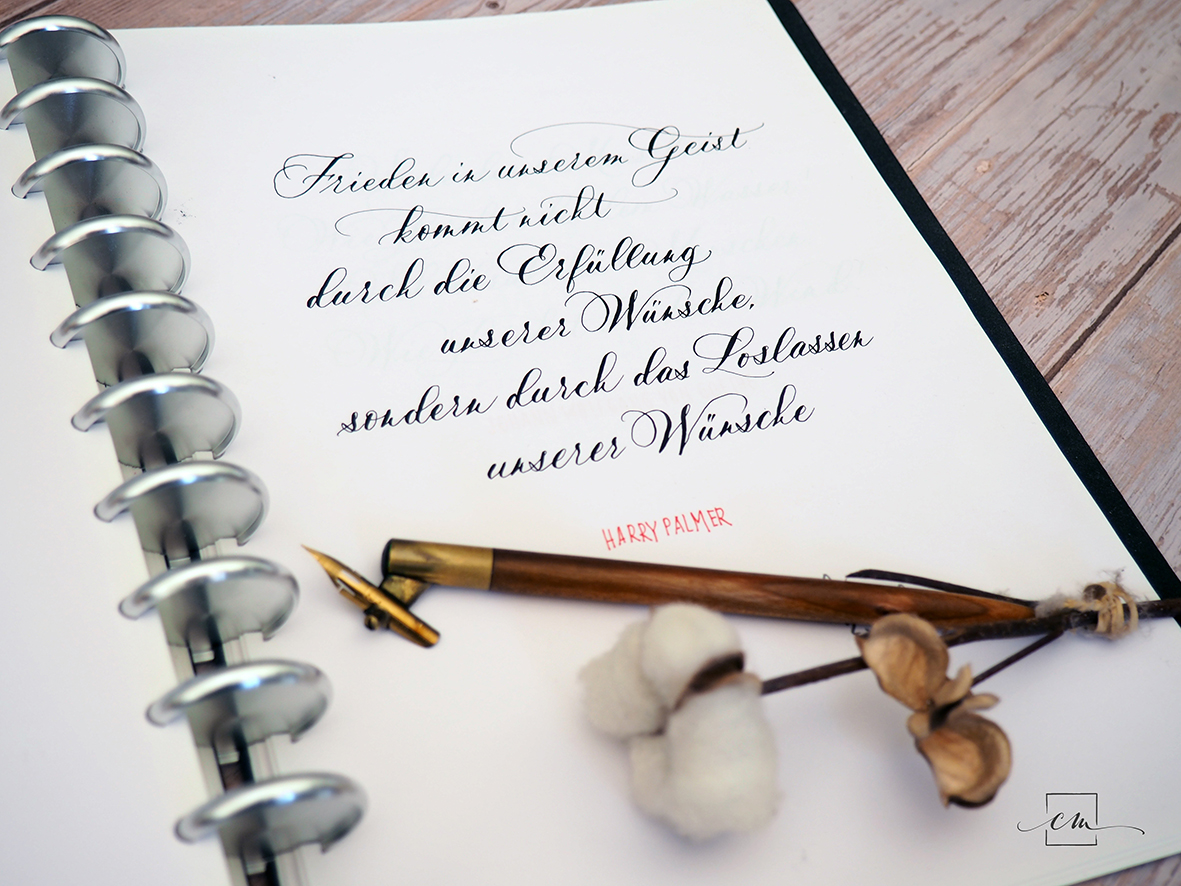 Frieden in unserem Geist
kommt nicht
durch die Erfüllung
unserer Wünsche,
sondern durch das Loslassen
unserer Wünsche
HARRY PALMER
cm